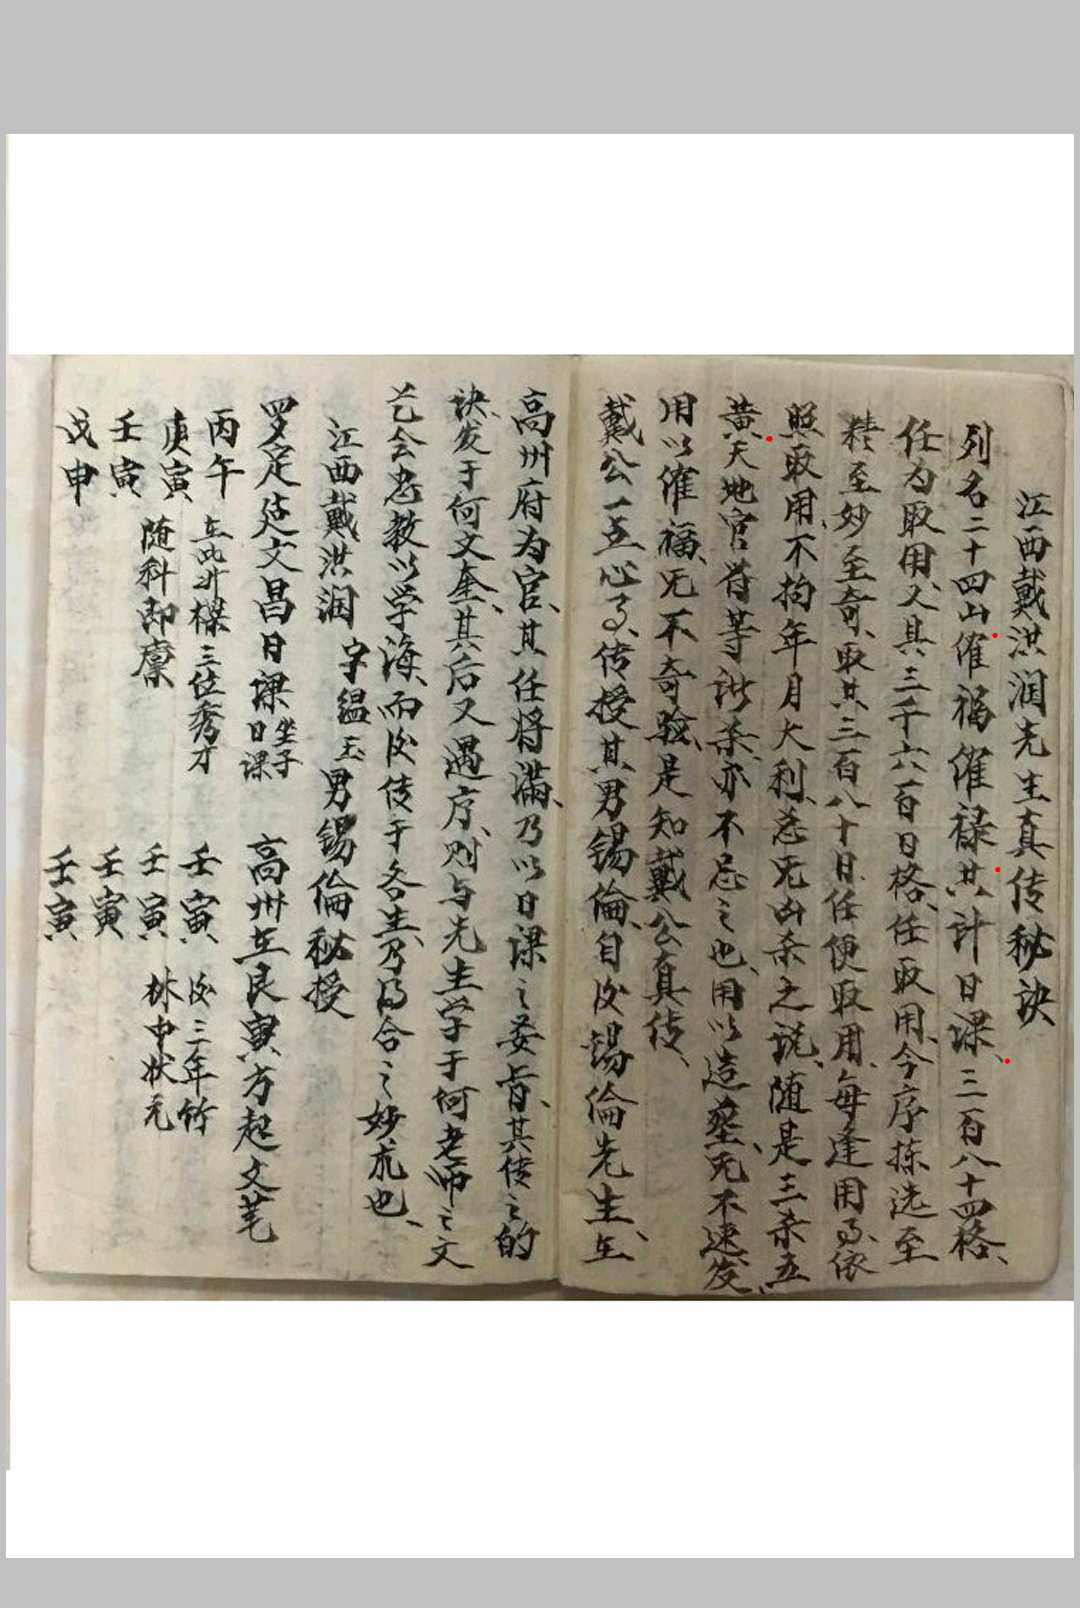 江西戴洪润先生真传秘诀
列名二十四山催福催禄共计日课、三百八十四格、
任为取用、又其三千六百日格、任取用、今序拣选至
精至妙至奇、取共三百八十日、任便取用、每逢用了、依
照取用、不拘年月大利、忌无凶杀之说、随是三杀五
黄天地官符等诸杀、亦不忌之也、用以造葬、无不速发、
用以催福、无不奇验、是知戴公真传、
戴公一立心了、传授其男锡倫、自后锡倫先生、在
高州府为官、其任将满、乃以日课之妾肯、其传之的
诀、发于何文奎、其后又遇序、则与先生学于何老师之文
艺会忠教以学海、而后传于各生、乃得合之妙术也、
江西戴洪润 字缊玉 男锡倫秘授
罗定廷文昌日课 坐子日课
丙午
庚寅
壬寅
戊申
在此升櫈三位秀才
随科即廪
高州在艮寅方起文笔
壬寅
壬寅
壬寅
壬寅
后三年竹
林中状元